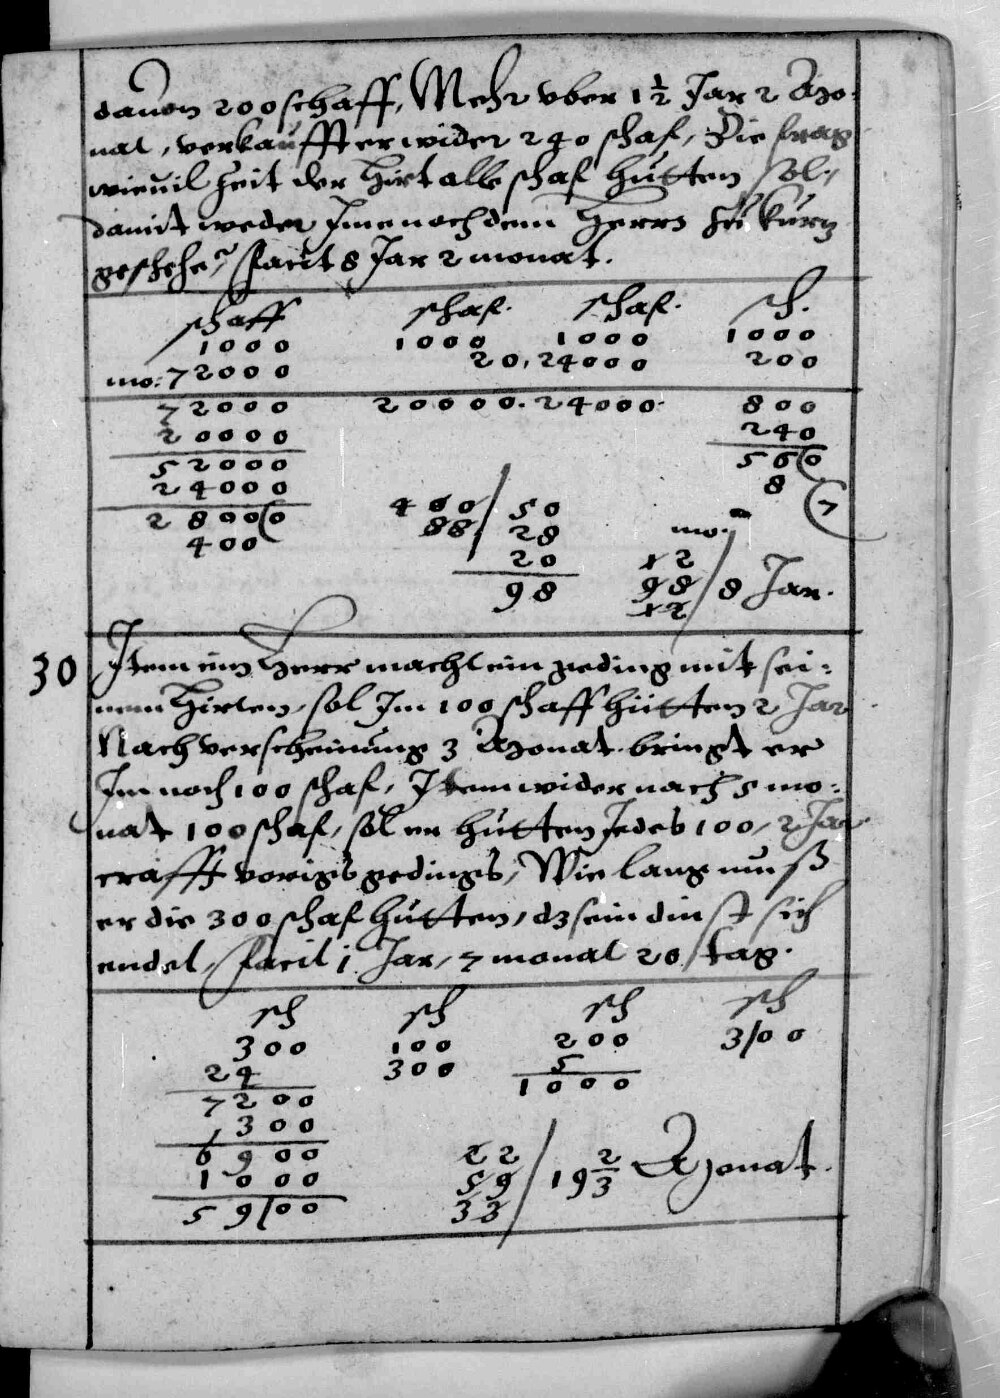 dauon 200 schaff, Mehr vber 1½ Jar 2 Mo-
nat, verkaufft er wider 240 schaf, Die frag
wieuil zeit der Hirt alle schaf hutten sol,
damit weder Jme noch dem Herrn zu kurtz
geschehe, facit 8 Jar 2 monat.
schaff schaf. schaf. sch.
1000 1000 1000 1000
mo: 72000 20, 24000 200
72000 20000. 24000. 800
20000 240
52000 560
24000 8 7
28000
400
400 / 50
88 / 28
20
98
mo:
12
98 / 8 Jar.
12
30 Item ein Herr macht ein geding mit sei:
nem Hirten, sol Jm 100 schaff hütten 2 Jar
Nach verscheinung 3 Monat bringt er
Jm noch 100 schaf, Item wider nach 5 mo:
nat 100 schaf, sol er hütten Jedes 100, 2 Jar
crafft vorigs gedings, Wie lang muß
er die 300 schaf hutten, dz sein dinst sich
endet, facit 1 Jar, 7 monat 20 tag.
sch sch sch sch
300 100 200 3/00
24 300 5
7200 1000
300
6900
1000
59/00
22
59 / 19 2/3 Monat.
33